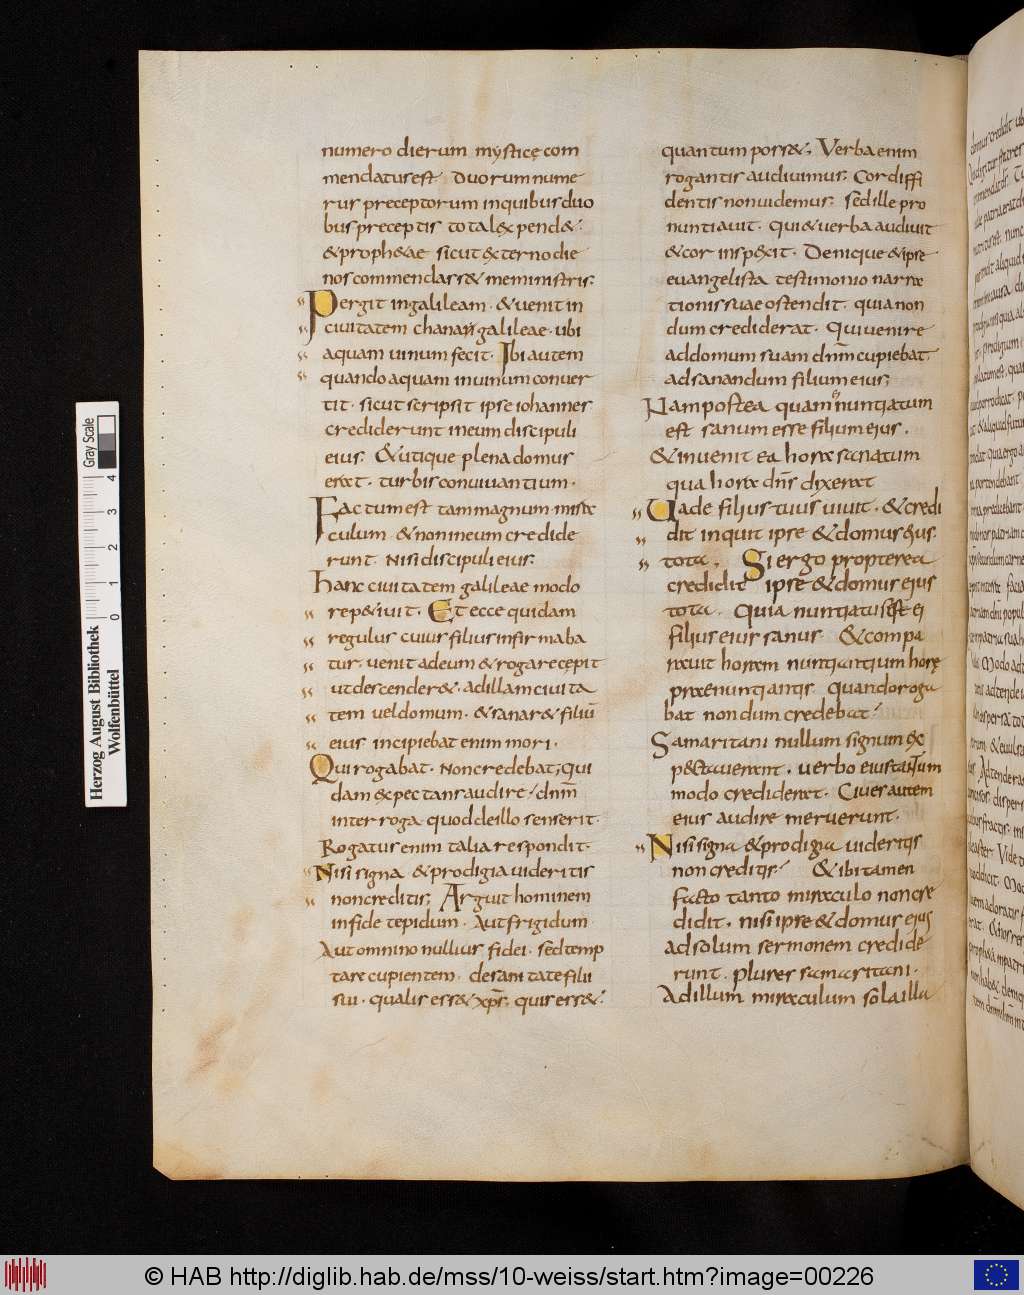 numero dierum mysticę com
mendatus est Duorum nume
rus preceptorum in quibus duo
bus preceptis tota lex pendet
& prophetae sicut & externo die
nos commendasse meministis.
Pergit in galileam. & uenit in
ciuitatem chanan galileae. ubi
aquam uinum fecit. Ibi autem
quando aquam in uinum conuer
tit. sicut scripsit ipse iohannes
crediderunt in eum discipuli
eius. & utique plena domus
erat. turbis conuiuantium.
Factum est tam magnum mira
culum. & non in eum credide
runt. Nisi discipuli eius.
hanc ciuitatem galileae modo
repetiuit. Et ecce quidam
regulus cuius filius infirmaba
tur. uenit ad eum & rogare cępit
ut descenderet. ad illam ciuita
tem uel domum. & sanaret filiū
eius incipiebat enim mori.
Qui rogabat. Non credebat; qui
dam expectans audire. dnm̄
interroga quod de illo senserit.
Rogatus enim talia respondit.
Nisi signa & prodigia uideritis
non creditis; Arguit hominem
in fide tepidum. Aut frigidum
Aut omnino nullius fidei. sed temp
tare cupientem. de sanitate filii
sui. qualis esset xp̄s. quis esset.
quantum posset. Verba enim
rogantis audiuimus; Cor diffi
dentis non uidemus; sed ille pro
nuntiauit. Qui & uerba audiuit
& cor inspexit. Denique & ipse
euangelista testimonio narra
tionis suae ostendit. quia non
dum crediderat. Qui uenire
ad domum suam dnm̄ cupiebat.
ad sanandum filium eius;
Nam postea quam nuntiatum
est sanum esse filium eius.
& inuenit ea hora sanatum
qua hora dn̄s dixerat
Uade filius tuus uiuit. & credi
dit inquit ipse & domus eius.
tota. Si ergo propterea
credidit ipse & domus eius
tota. Quia nuntiatus est ei
filius eius sanus & compa
rauit horam nuntiantium horę
praenuntiantis quando roga
bat nondum credebat.
Samaritani nullum signum ex
pectauerant. uerbo eius tantum
modo crediderat. Ciues autem
eius audire meruerunt.
Nisi signa & prodigia uideritis
non creditis. & ibi tamen
facto tanto miraculo non cre
didit. nisi ipse & domus eius
ad solum sermonem credide
runt. plures samaritani.
Ad illum miraculum sola illa
Herzog August Bibliothek
Wolfenbüttel
0 1 2 3 4
Gray Scale
© HAB http://diglib.hab.de/mss/10-weiss/start.htm?image=00226